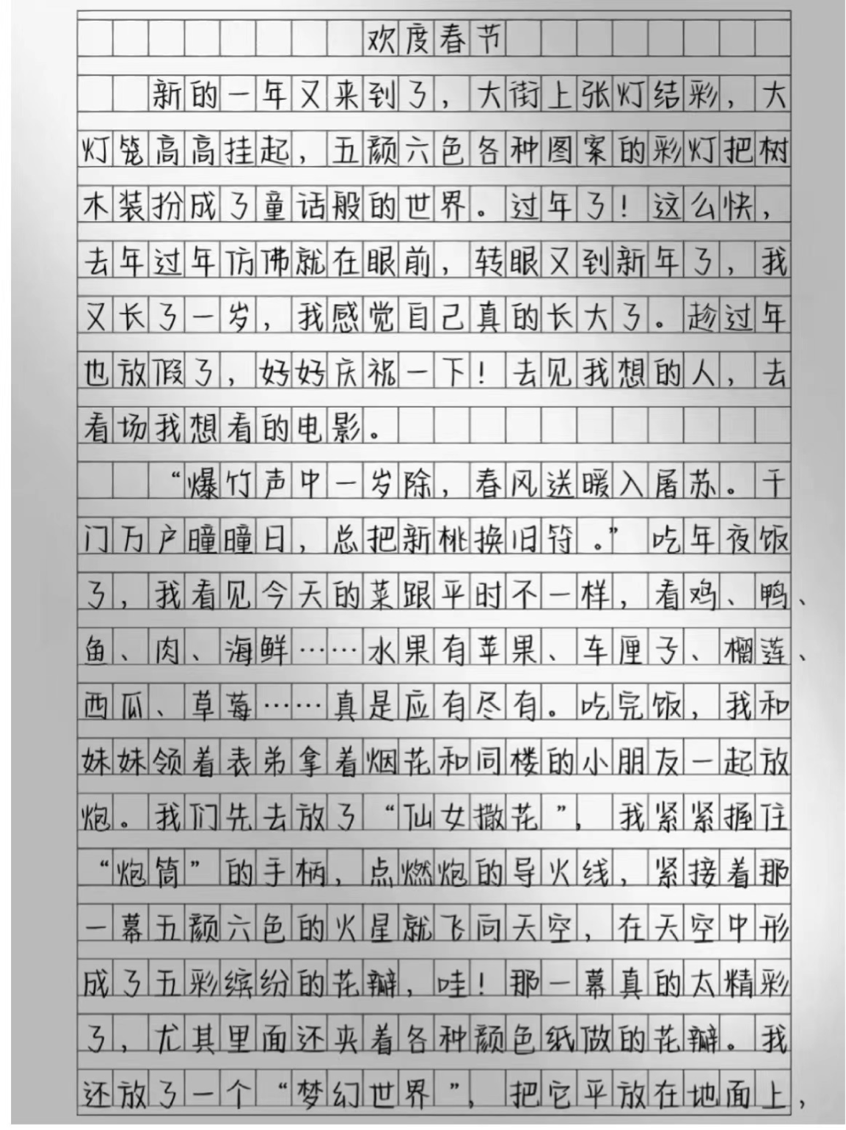 欢度春节
新的一年又来到了，大街上张灯结彩，大
灯笼高高挂起，五颜六色各种图案的彩灯把树
木装扮成了童话般的世界。过年了！这么快，
去年过年仿佛就在眼前，转眼又到新年了，我
又长了一岁，我感觉自己真的长大了。趁过年
也放假了，好好庆祝一下！去见我想的人，去
看场我想看的电影。
“爆竹声中一岁除，春风送暖入屠苏。千
门万户曈曈日，总把新桃换旧符。”吃年夜饭
了，我看见今天的菜跟平时不一样，看鸡、鸭、
鱼、肉、海鲜……水果有苹果、车厘子、榴莲、
西瓜、草莓……真是应有尽有。吃完饭，我和
妹妹领着表弟拿着烟花和同楼的小朋友一起放
炮。我们先去放了“仙女撒花”，我紧紧握住
“炮筒”的手柄，点燃炮的导火线，紧接着那
一幕五颜六色的火星就飞向天空，在天空中形
成了五彩缤纷的花瓣，哇！那一幕真的太精彩
了，尤其里面还夹着各种颜色纸做的花瓣。我
还放了一个“梦幻世界”，把它平放在地面上，